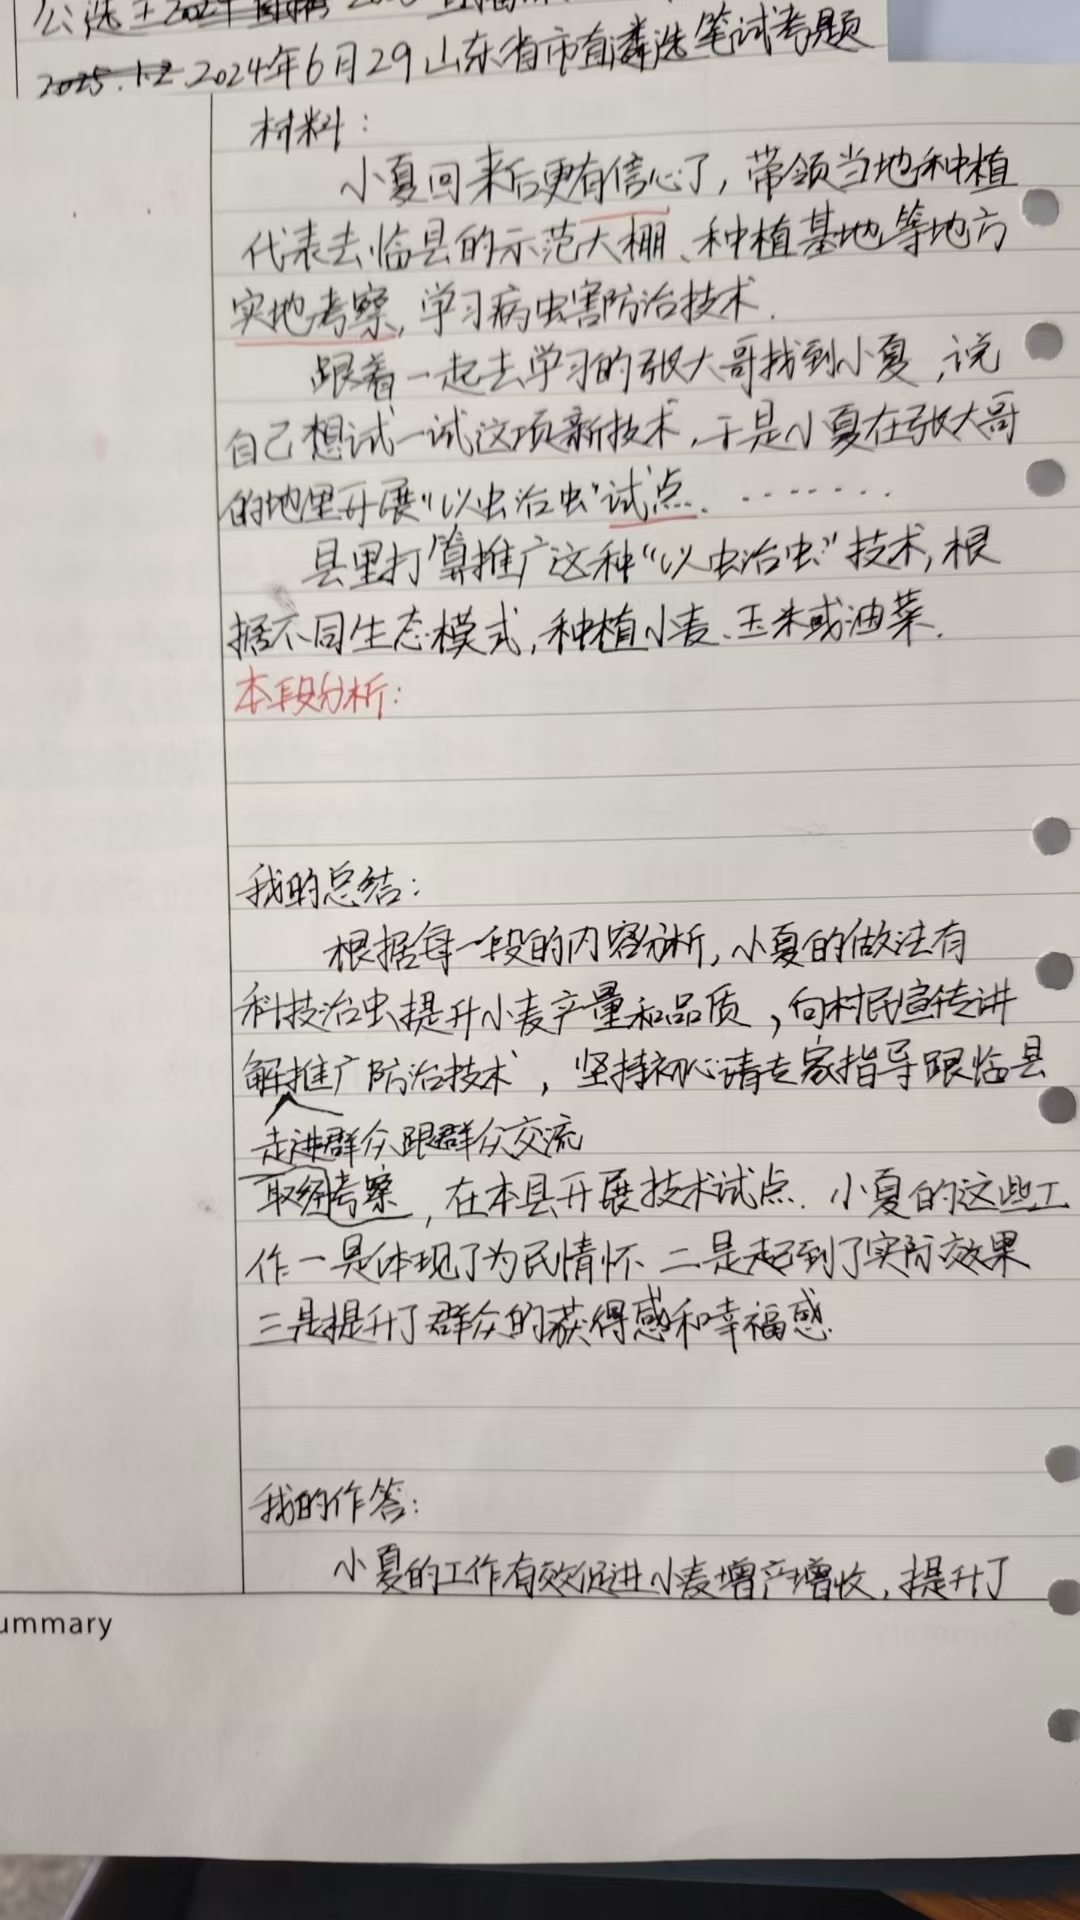 公选王2024
2025.1.2 2024年6月29山东省市直遴选笔试考题
材料：
小夏回来后更有信心了，带领当地种植
代表去临县的示范大棚、种植基地等地方
实地考察，学习病虫害防治技术.
跟着一起去学习的张大哥找到小夏，说
自己想试一试这项新技术，于是小夏在张大哥
的地里开展“以虫治虫”试点. .......
县里打算推广这种“以虫治虫”技术，根
据不同生态模式，种植小麦、玉米或油菜.
本段分析：
我的总结：
根据每一段的内容分析，小夏的做法有
科技治虫提升小麦产量和品质，向村民宣传讲
解推广防治技术，坚持初心请专家指导跟临县
走进群众跟群众交流
取经考察，在本县开展技术试点. 小夏的这些工
作一是体现了为民情怀 二是起到了实际效果
三是提升了群众的获得感和幸福感.
我的作答：
小夏的工作有效促进小麦增产增收，提升了
ummary